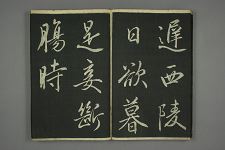 遲西陵
日欲暮
是妾斷
腸時